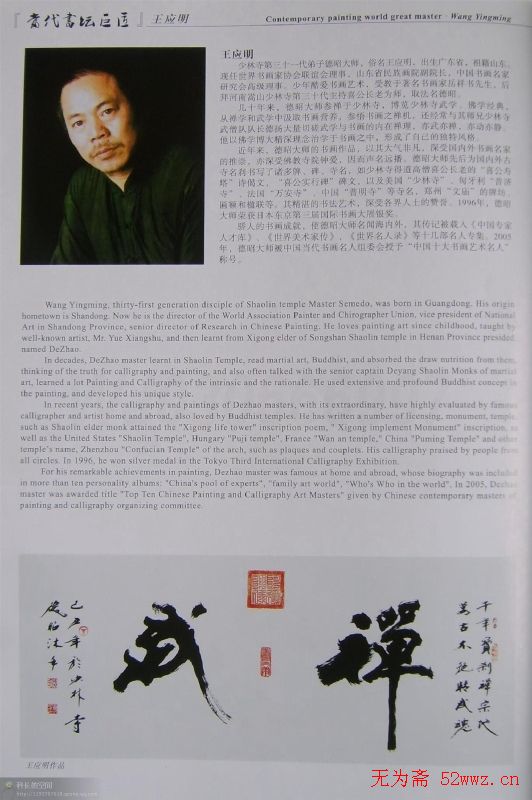 『當代書坛巨匠』王应明
Contemporary painting world great master - Wang Yingming
王应明
少林寺第三十一代弟子德昭大师，俗名王应明，出生广东省，祖籍山东。
现任世界书画家协会联谊会理事，山东省民族画院副院长，中国书画名家
研究会高级理事。少年酷爱书画艺术，受教于著名书画家岳祥书先生，后
拜河南嵩山少林寺第三十代主持喜公长老为师，取法名德昭。
几十年来，德昭大师参禅于少林寺，博览少林寺武学、佛学经典，
从禅学和武学中汲取书画营养，参悟书画之禅机，还经常与其师兄少林寺
武僧队队长德扬大垫切磋武学与书画的内在禅理，亦武亦禅，亦动亦静。
他以佛学博大精深理念治学于书画之中，形成了自己的独特风格。
近年来，德昭大师的书画作品，以其大气非凡，深受国内外书画名家
的推崇，亦深受佛教寺院钟爱，因而声名远播。德昭大师先后为国内外古
寺名刹书写了诸多牌、碑、寺名，如少林寺得道高僧喜公长老的“喜公寿
塔”诗偈文，“喜公实行碑”碑文，以及美国“少林寺”，匈牙利“普济
寺”，法国“万安寺”，中国“普明寺”等寺名，郑州“文庙”的牌坊、
匾额和楹联等。其精湛的书法艺术，深受各界人士的赞誉。1996年，德昭
大师荣获日本东京第三届国际书画大展银奖。
骄人的书画成就，使德昭大师名闻海内外，其传记被载入《中国专家
人才库》、《世界美术家传》、《世界名人录》等十几部名人专集。2005
年，德昭大师被中国当代书画名人组委会授予“中国十大书画艺术名人”
称号。
Wang Yingming, thirty-first generation disciple of Shaolin temple Master Semedo, was born in Guangdong. His origin
hometown is Shandong. Now he is the director of the World Association Painter and Chirographer Union, vice president of National
Art in Shandong Province, senior director of Research in Chinese Painting. He loves painting art since childhood, taught by
well-known artist, Mr. Yue Xiangshu, and then learnt from Xigong elder of Songshan Shaolin temple in Henan Province presided,
named DeZhao.
In decades, DeZhao master learnt in Shaolin Temple, read martial art, Buddhist, and absorbed the draw nutrition from them,
thinking of the truth for calligraphy and painting, and also often talked with the senior captain Deyang Shaolin Monks of martial
art, learned a lot Painting and Calligraphy of the intrinsic and the rationale. He used extensive and profound Buddhist concept in
the painting, and developed his unique style.
In recent years, the calligraphy and paintings of Dezhao masters, with its extraordinary, have highly evaluated by famous
calligrapher and artist home and abroad, also loved by Buddhist temples. He has written a number of licensing, monument, temple,
such as Shaolin elder monk attained the "Xigong life tower" inscription poem, " Xigong implement Monument" inscription, as
well as the United States "Shaolin Temple", Hungary "Puji temple", France "Wan an temple," China "Puming Temple" and other
temple's name, Zhenzhou "Confucian Temple" of the arch, such as plaques and couplets. His calligraphy praised by people from
all circles. In 1996, he won silver medal in the Tokyo Third International Calligraphy Exhibition.
For his remarkable achievements in painting, Dezhao master was famous at home and abroad, whose biography was included
in more than ten personality albums: "China's pool of experts", "family art world", "Who's Who in the world". In 2005, Dezhao
master was awarded title "Top Ten Chinese Painting and Calligraphy Art Masters" given by Chinese contemporary masters of
painting and calligraphy organizing committee.
千年寶刹禪宗地
萬古不老
禪武
己丑年於少林寺
王应明作品
科长的空间
无为斋 52wwz.cn